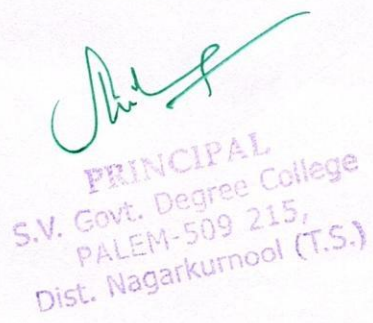 PRINCIPAL
S.V. Govt. Degree College
PALEM-509 215,
Dist. Nagarkurnool (T.S.)